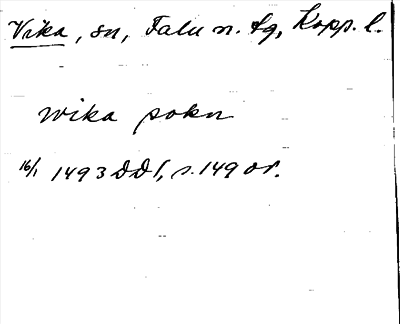 Vika, sn, Falu n. tg, Kopp. l.
wika sokn
16/1 1493 DD 1, s. 149 or.